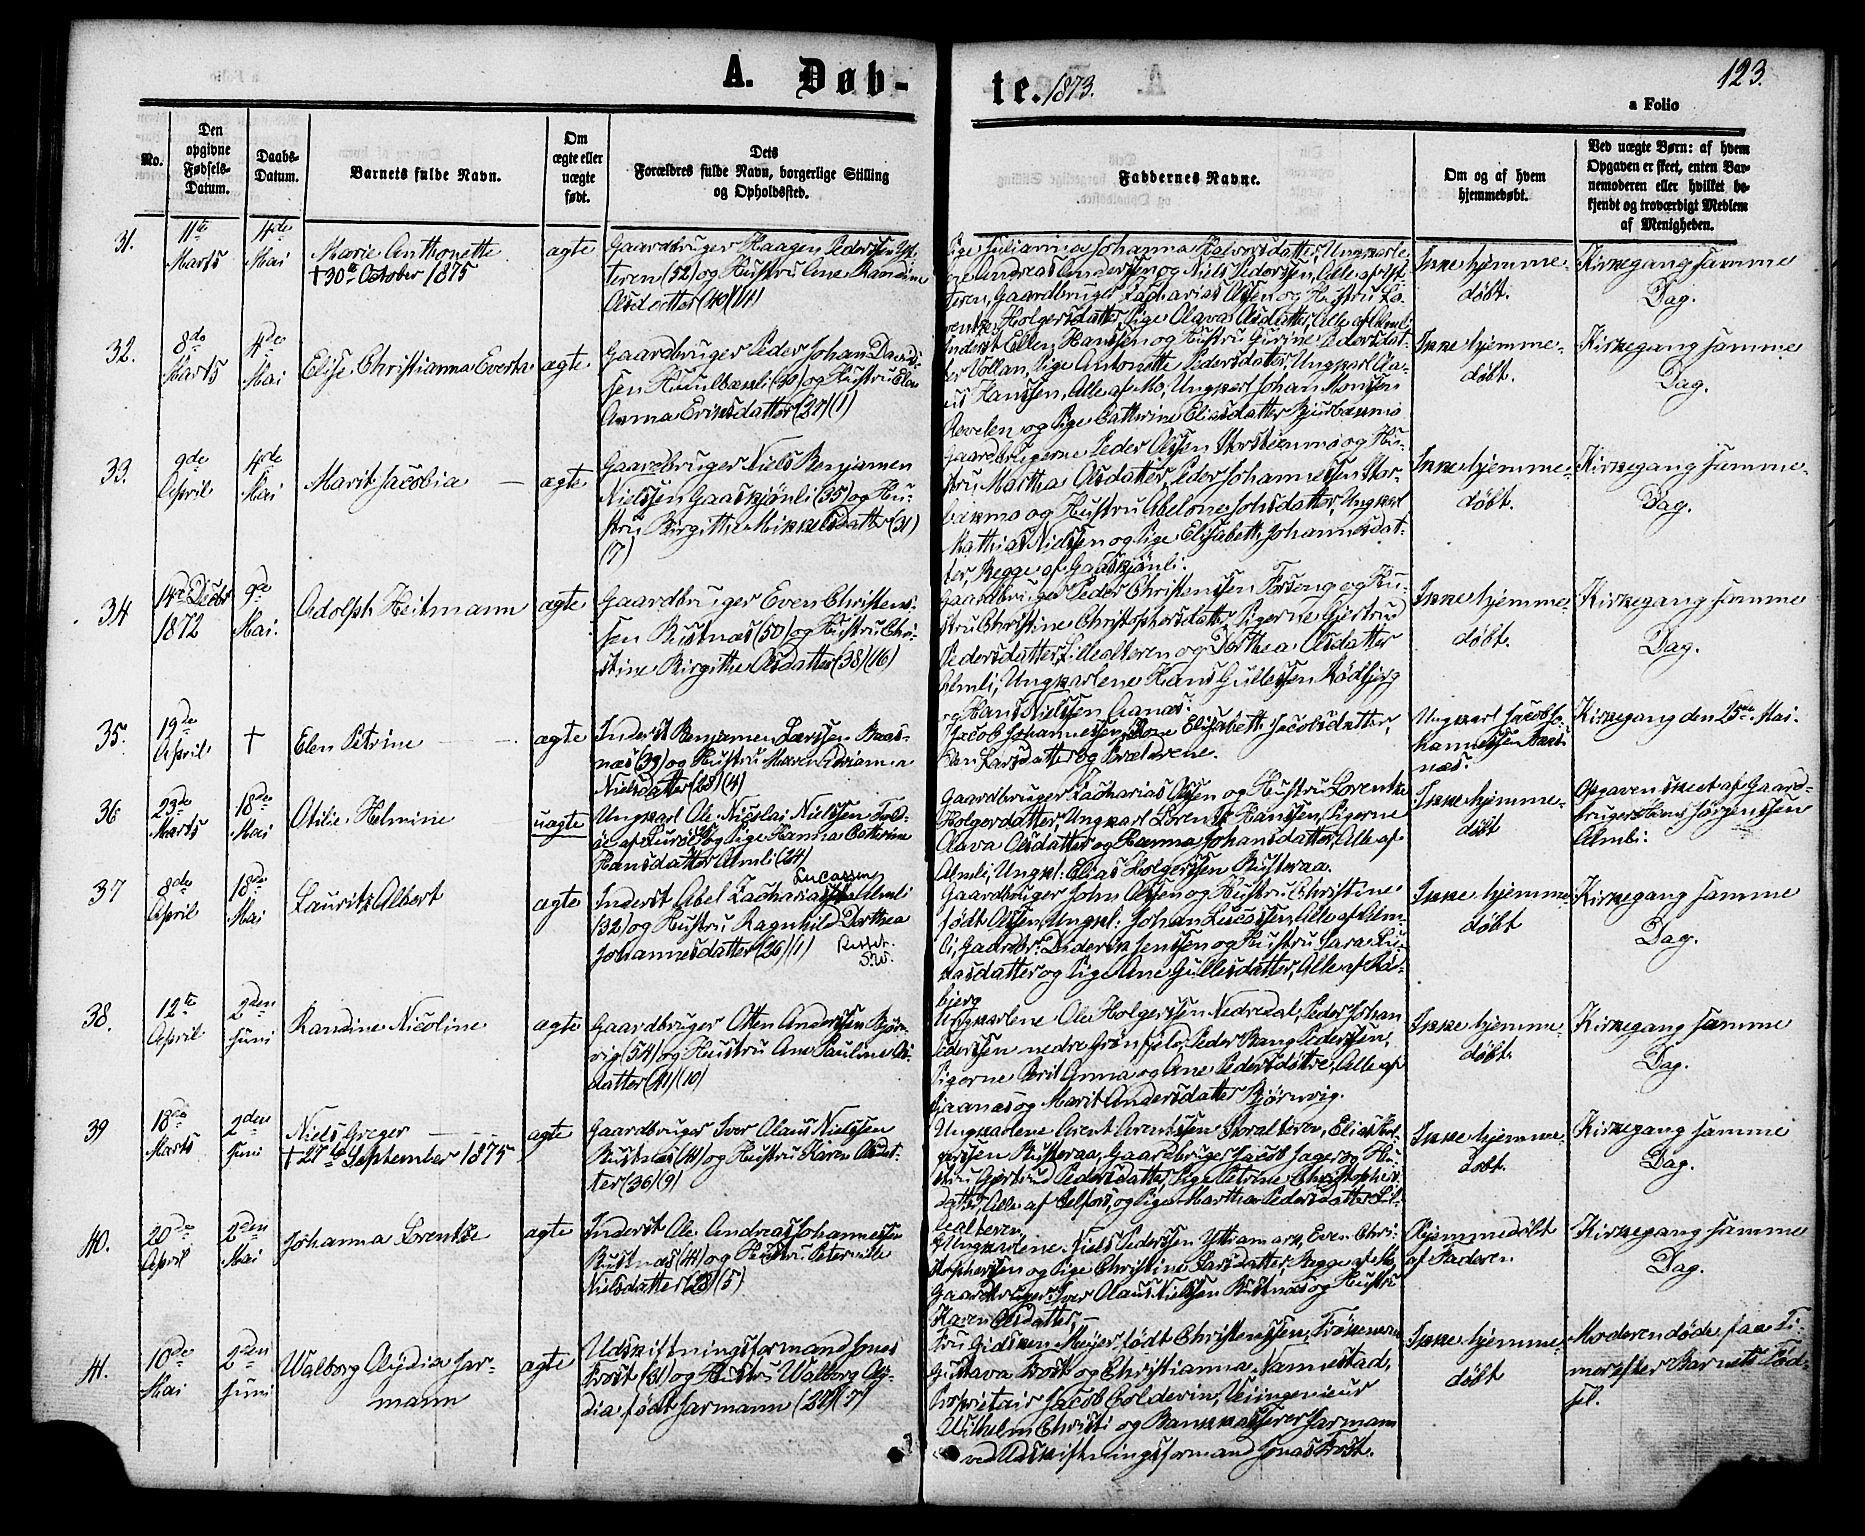 A. Døb-
te. 1873.
123.
a Folio
No.
Den opgivne Fødsels-Datum.
Daabs-Datum.
Barnets fulde Navn.
Om ægte eller uægte født.
Dets
Forældres fulde Navn, borgerlige Stilling
og Opholdssted.
Faddernes Navne.
Om og af hvem
hjemmedøbt.
Ved uægte Børn: af hvem
Opgaven er skeet, enten Bar-
nemoderen eller hvilket be-
kjendt og troværdigt Medlem
af Menigheden.
31.
11te Marts
4de Mai
Marie Anthonette
† 30te October 1875
ægte
Gaardbruger Haagen Pederssen
teren (52) og Hustru Ane Randine
Olsdatter (40) (11)
Pige Julianna Johanna Halvorsdatter, Ungkarle-
ne Andreas Anderssen og Niels Pederssen, Alle af
teren, Gaardbruger Zacharias Olssen og Hustru Lo-
rentze Holgersdatter, Pige Olava Olsdatter, Alle af Almli
Ikke hjemme-
døbt.
Kirkegang samme
Dag.
32.
8de Marts
4de Mai
Elise Christianna Everta
ægte
Gaardbruger Peder Johan David-
sen (30) og Hustru Elen
Anna Eriksdatter (27) (1)
Inderst Ellen Hanssen og Hustru Gurine Pedersdat-
ter Vollan, Pige Antonette Pedersdatter, Ungkarl Cla-
us Hanssen, Alle af Mo, Ungkarl Johan Monssen
Revelen og Pige Cathrine Eliasdatter
Ikke hjemme-
døbt.
Kirkegang samme
Dag.
33.
9de April
4de Mai
Marit Jacobia
ægte
Gaardbruger Niels Benjamen
Nielssen Gaaskjønli (35) og Hu-
stru Birgitte Mikkelsdatter (31)
(7)
Gaardbrugerne Peder Olssen og Hu-
stru Martha Olsdatter, Peder Johannessen Stor-
og Hustru Abelone Johsdatter, Ungkarl
Mathias Nielssen og Pige Elisabeth Johannesdat-
ter, Begge af Gaaskjønli.
Ikke hjemme-
døbt.
Kirkegang samme
Dag.
34
14de Decbr 1872
9de Mai.
Adolph Heitmann
ægte
Gaardbruger Even Christens-
sen Bustnæs (50) og Hustru Chri-
stine Birgitte Olsdatter (38) (16)
Gaardbruger Peder Christenssen Forseng og Hu-
stru Christine Christophersdatter, Pigerne Gjertrud
Pedersdatter, Lillealteren og Dorthea Olsdatter
Almli, Ungkarlene Hans Gullessen Rødbjerg
og Hans Nielssen
Ikke hjemme-
døbt.
Kirkegang samme
Dag.
35.
19de April
†
Elen Petrine
ægte
Inderst Benjamen Larssen Baas-
næs (39) og Hustru Maren
Nielsdatter (28) (4)
Jacob Johannessen, Elisabeth Jacobsdatter,
Elen Larsdatter og Forældrene.
Ungkarl Jacob Jo-
hannessen Baas-
næs.
Kirkegang den 25de Mai.
36
23de Marts
18de Mai
Otilie Helmine
uægte
Ungkarl Ole Nicolai Nielssen
af Lurø og Pige Hanna Catrine
Hansdatter Almli (24)
Gaardbruger Zacharias Olssen og Hustru Lorentze
Holgersdatter, Ungkarl Lorents Hanssen, Pigerne
Olava Olsdatter og Hanna Johansdatter, Alle af
Almli, Ungkl: Elias Holgerssen
Ikke hjemme-
døbt
Opgaven skeet af Gaard-
bruger Hans Jørgenssen
Almli.
37
8de April
18de Mai
Lauritz Albert
ægte
Lucassen
Inderst Abel Zacharias Almli
(32) og Hustru Ragnhild Dorthea
Johannesdatter (26) (1)
Gaardbruger John Olssen og Hustru Christine
født Olssen, Ungkl: Johan Lucassen, Alle af Alm-
li, Gaardbr: Diderik Jenssen og Hustru Sara Lu-
kasdatter og Pige Ane Gullesdatter, Alle af Rø-
bjerg
Ikke hjemme-
døbt
Kirkegang samme
Dag.
38.
12te April
2den Juni
Randine Nicoline
ægte
Gaardbruger Otten Anderssen Bjørn-
vig (54) og Hustru Ane Pauline
datter (41) (10)
Ungkarlene Ole Holgerssen Nedredal, Peder Johan
Pederssen nedre Grønfjeld, Peder Bang Pederssen,
Pigerne Berit Anna og Ane Pedersdøttre, Alle af
og Marit Andersdatter Bjørnvig.
Ikke hjemme-
døbt.
Kirkegang samme
Dag.
39
18de Marts
2den Juni
Niels Greger
† 27de September 1875
ægte
Gaardbruger Iver Olaus Nielssen
Bustnæs (41) og Hustru Karen Olsdat-
ter (36) (9)
Ungkarlene Arent Arentssen Storalteren, Elias Hol-
gerssen, Gaardbruger Jacob Jager og Hu-
stru Gjertrud Pedersdatter, Pige Petrine Christophers-
datter, Alle af Selfors, og Pige Martha Pedersdatter Lil-
lealteren.
Ikke hjemme-
døbt.
Kirkegang samme
Dag.
40.
20de April
2den Mai
Johanna Lorentze
ægte
Inderst Ole Andreas Johannessen
Bustnæs (44) og Hustru Peternille
Nielsdatter (28) (5)
Ungkarlene Niels Pederssen Yttermark, Even Chri-
stopherssen og Pige Christine Larsdatter, Begge af Mo,
Gaardbruger Iver Olaus Nielssen Bustnæs og Hustru
Karen Olsdatter. —
Hjemmedøbt
af Faderen
Kirkegang samme
Dag.
41.
10de Mai
2den Juni
Walborg Alydia Jar-
mann
ægte
Udskiftningsformand Jonas
Frost (31) og Hustru Walborg Aly-
dia født Jarmann (28) (7)
Fru Gidsken Meyer født Christenssen, Frøknerne
Gustava Frost og Christianna Nannestad,
Proprietair Jacob Coldevin, Veiingenieur
Wilhelm Christi og Bankkasserer Jarmann
ved Udskiftningsformand Jonas Frost.
Ikke hjemme-
døbt
Moderen døde faa Ti-
mer efter Barnets Fød-
sel.